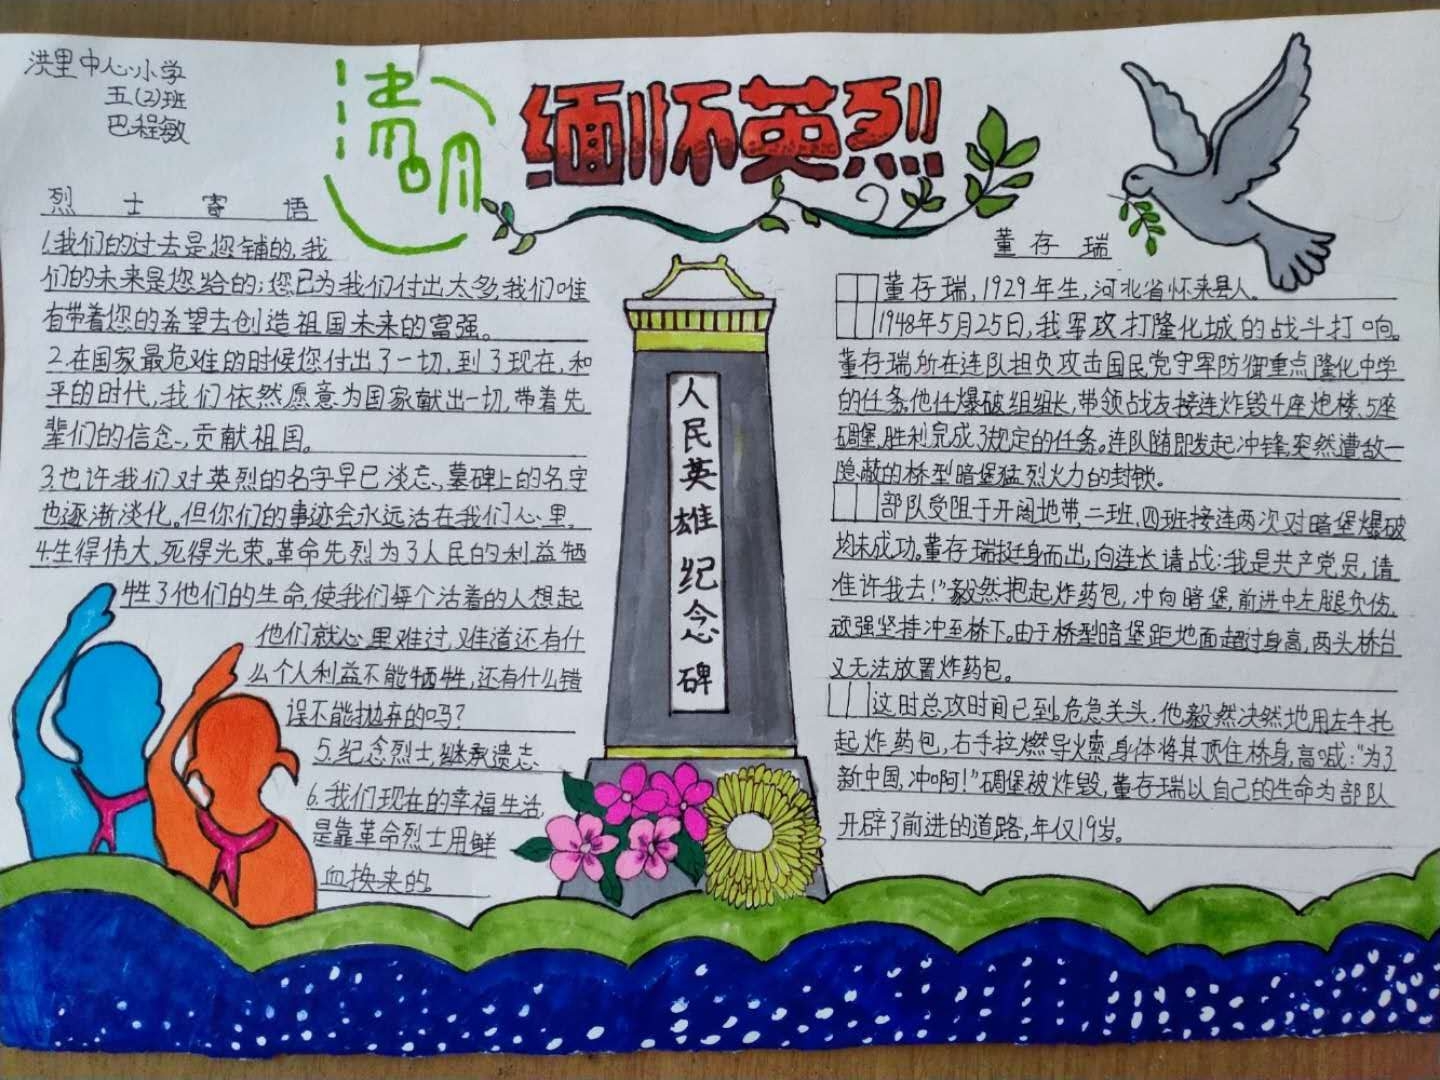 洪里中心小学
五(2)班
巴程敏
清明
缅怀英烈
烈士寄语
1.我们的过去是您铺的,我
们的未来是您给的;您已为我们付出太多,我们唯
有带着您的希望去创造祖国未来的富强。
2.在国家最危难的时候您付出了一切,到了现在,和
平的时代,我们依然愿意为国家献出一切,带着先
辈们的信念,贡献祖国。
3.也许我们对英烈的名字早已淡忘,墓碑上的名字
也逐渐淡化。但你们的事迹会永远活在我们心里。
4.生得伟大,死得光荣。革命先烈为了人民的利益牺
牲了他们的生命,使我们每个活着的人想起
他们就心里难过,难道还有什
么个人利益不能牺牲,还有什么错
误不能抛弃的吗?
5.纪念烈士,继承遗志
6.我们现在的幸福生活,
是靠革命烈士用鲜
血换来的。
人民英雄纪念碑
董存瑞
董存瑞,1929年生,河北省怀来县人。
1948年5月25日,我军攻打隆化城的战斗打响。
董存瑞所在连队担负攻击国民党守军防御重点隆化中学
的任务。他任爆破组组长,带领战友接连炸毁4座炮楼、5座
碉堡,胜利完成了规定的任务。连队随即发起冲锋,突然遭敌一
隐蔽的桥型暗堡猛烈火力的封锁。
部队受阻于开阔地带,二班、四班接连两次对暗堡爆破
均未成功。董存瑞挺身而出,向连长请战:我是共产党员,请
准许我去!"毅然抱起炸药包,冲向暗堡,前进中左腿负伤,
顽强坚持冲至桥下。由于桥型暗堡距地面超过身高,两头桥台
又无法放置炸药包。
这时总攻时间已到。危急关头,他毅然决然地用左手托
起炸药包,右手拉燃导火索,身体将其顶住桥身,高喊:"为了
新中国,冲啊!"碉堡被炸毁,董存瑞以自己的生命为部队
开辟了前进的道路,年仅19岁。